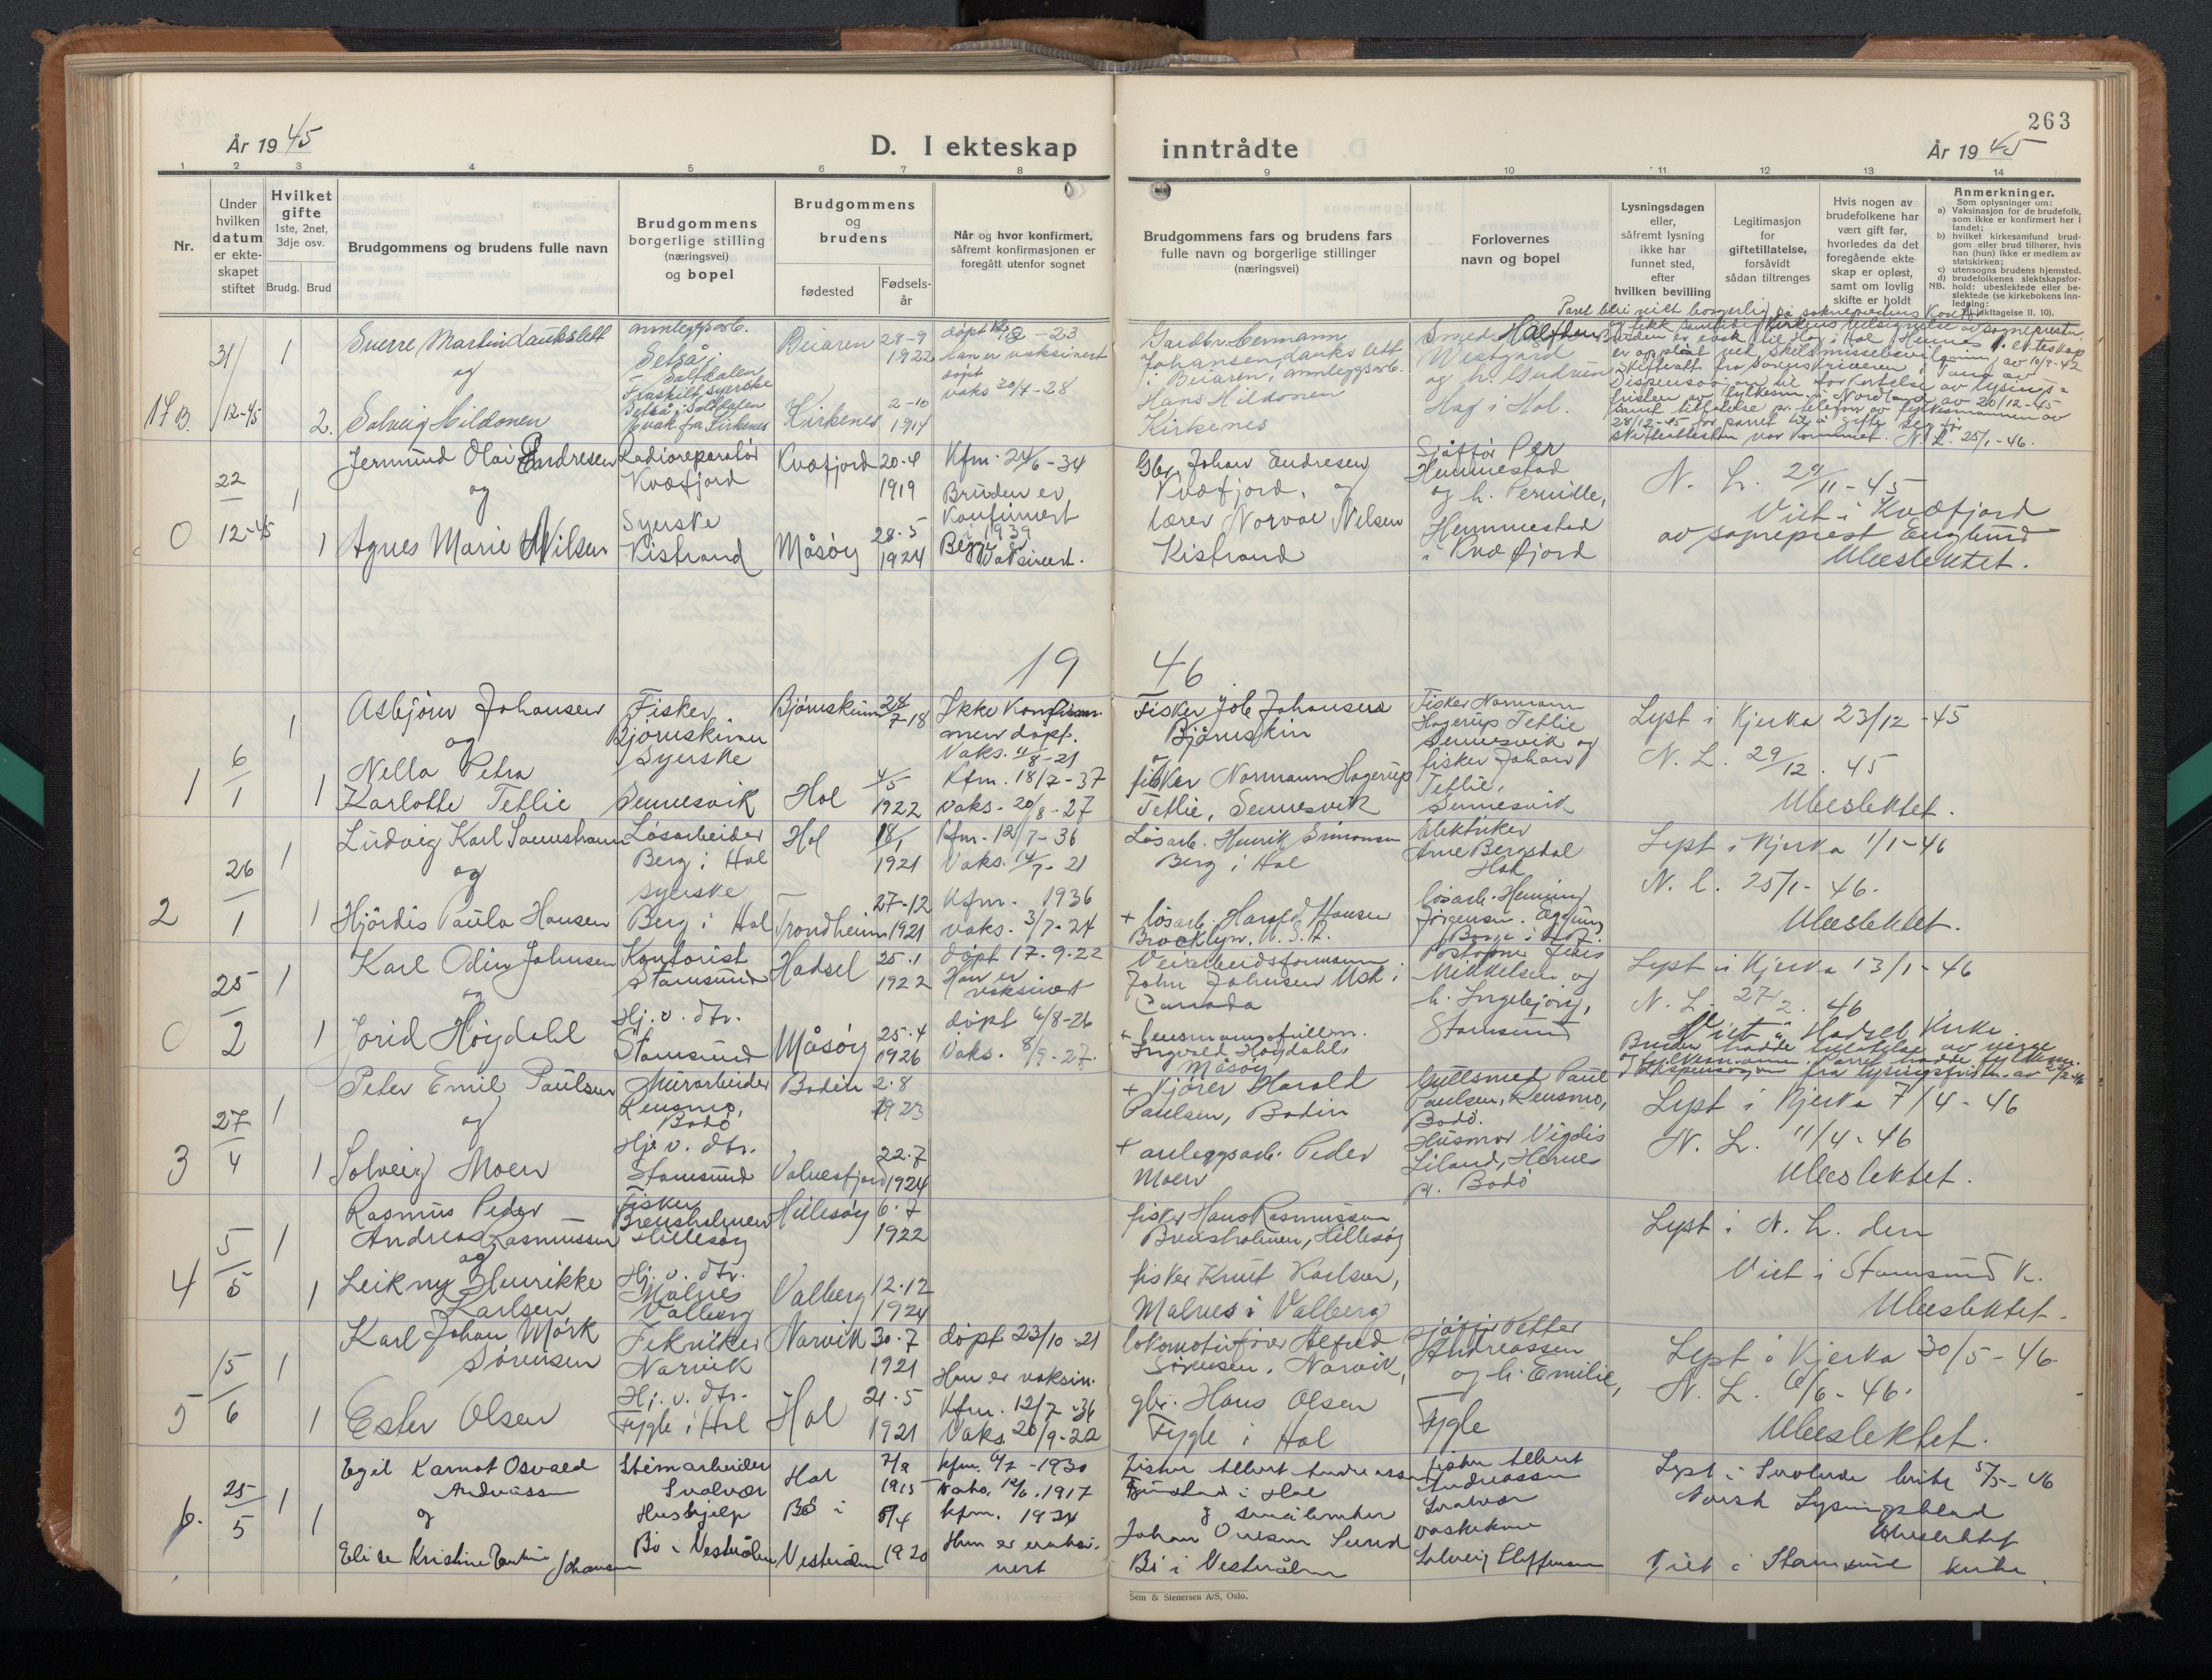 263
År 19 45
D. I ekteskap inntrådte
År 19 45
1 2 3 4 5 6 7 8 9 10 11 12 13 14
Nr.
Under hvilken datum er ekteskapet stiftet
Hvilket gifte
1ste, 2net, 3dje osv.
Brudg. Brud
Brudgommens og brudens fulle navn
Brudgommens borgerlige stilling (næringsvei) og bopel
Brudgommens og brudens
fødested
Fødselsår
Når og hvor konfirmert, såfremt konfirmasjonen er foregått utenfor sognet
Brudgommens fars og brudens fars fulle navn og borgerlige stillinger (næringsvei)
Forlovernes navn og bopel
Lysningsdagen eller, såfremt lysning ikke har funnet sted, efter hvilken bevilling
Legitimasjon for giftetillatelse, forsåvidt sådan tiltrenges
Hvis nogen av brudefolkene har vært gift før, hvorledes da det foregående ekteskap er opløst, samt om lovlig skifte er holdt
Anmerkninger.
Som oplysninger om:
a) Vaksinasjon for de brudefolk, som ikke er konfirmert her i landet;
b) hvilket kirkesamfund brudgom eller brud tilhører, hvis han (hun) ikke er medlem av statskirken;
c) utensogns brudens hjemsted.
d) brudefolkenes slektskapsforhold: ubeslektede eller beslektede (se kirkebokens innledning:
17 B. 31/12-45 1 2.
Sverre Martin Laukslett
og
Solveig Hildonen
anleggsarb.
Setså i
Saltdalen
Fraskilt, syerske
Setså i Saltdalen
Evak. fra Kirkenes
Beiaren 28-9 1922
Kirkenes 2-10 1914
Han er vaksinert
døpt
vaks 30/7-28
Gardbr. Hermann
Johansen Laukslett
i Beiaren, anleggsarb.
Hans Hildonen
Kirkenes
Westgård
og h. Gudrun
Hag i Hol.
28/12-45 for paret til å gifte seg før
skifteattesten var kommet. N. L. 25/1-46.
0 22/12-45 1 1
Jermund Olai Endresen
og
Agnes Marie Nilsen
Radioreparatør
Kvæfjord
Syerske
Kistrand
Kvæfjord 20-4 1919
Måsøy 28-5 1924
Kfm. 24/6-34
Bruden er
konfirmert
i 1939
Begge er
vaksinert.
Gbr. Johan Endresen
Kvæfjord. og
lærer Norvae Nilsen
Kistrand
Sjåfør Per
Hemmestad
og h. Pernille,
Hemmestad
i Kvæfjord
N. L. 29/11-45
Viet i Kvæfjord
av sogneprest Englund
Ubeslektet.
19 46
1 6/1 1 1
Asbjørn Johansen
og
Nella Petra
Karlotte Tetlie
Fisker
Bjørnskinn
Syerske
Sennesvik
Bjørnskinn 24/7-18
Hol 4/5 1922
Ikke konfirm.
men døpt.
Vaks. 11/8-21
Kfm. 18/7-37
Vaks. 20/8-27
Fisker Job Johansen
Bjørnskin
og
fisker Normann Hagerup
Tetlie, Sennesvik
Fisker Normann
Hagerup Tetlie
Sennesvik og
fisker Johan
Tetlie,
Sennesvik
Lyst i kjerka 23/12-45
N. L. 29/12. 45
Ubeslektet.
2 26/1 1 1
Ludvig Karl
og
Hjørdis Paula Hansen
Løsarbeider
Berg i Hol
syerske
Berg i Hol
Hol 18/1 1921
Trondheim 27-12 1921
Kfm. 12/7-36
Vaks. 14/7-21
Kfm. 1936
Vaks. 3/7-24
Løsarb. Henrik Simonsen
Berg i Hol
+ løsarb. Harald Hansen
Brooklyn. U. S. A.
Elektriker
Arne Bergsdal
Hol
løsarb. Henning
Jørgensen. Eggum
Lyst i kjerka 1/1-46
N. L. 25/1-46.
Ubeslektet.
0 25/2 1 1
Karl Odin Johnsen
og
Jorid Høgdahl
Kontorist
Stamsund
Hj. v. dtr.
Stamsund
Hadsel 25.1 1922
Måsøy 25.4 1926
døpt 17.9.22
Han er
vaksinert
døpt 6/8-26
Vaks. 8/9-27.
Veiarbeidsformann
John Johnsen Usk i
Canada
+ lensmannsfullm.
Ingvald Høgdahl
Måsøy
Mikkelsen og
h. Ingebjørg,
Stamsund
Lyst i kjerka 13/1-46
N. L. 27/2. 46
Viet i Hadsel kirke.
3 27/4 1 1
Peter Emil Paulsen
og
Solveig Moen
Murarbeider
Rensmo,
Bodø
Hj. v. dtr.
Stamsund
Bodin 2.8 1923
Valnesfjord 22.7 1924
+ Kjører Harald
Paulsen, Bodin
+ anleggsarb. Peder
Moen
Gullsmed Paul
Paulsen, Rensmo,
Bodø.
Husmor Vigdis
Liland, Hernes
pr. Bodø
Lyst i kjerka 7/4-46
N. L. 11/4-46
Ubeslektet.
4 5/5 1 1
Rasmus Peder
Andreas Rasmussen
og
Leikny Henrikke
Karlsen
Fisker
Brensholmen
Hillesøy
Hj. v. dtr.
Malnes
Valberg
Hillesøy 6.7 1922
Valberg 12.12 1924
fisker Hans Rasmussen
Brensholmen, Hillesøy
fisker Knut Karlsen,
Malnes i Valberg
Lyst i N. L. den
Viet i Stamsund k.
Ubeslektet.
5 15/6 1 1
Karl Johan Mørk
Sørensen
Ester Olsen
Tekniker
Narvik
Hj. v. dtr.
Fygle i Hol
Narvik 30.7 1921
Hol 21.5 1921
døpt 23/10-21
Han er vaksin.
Kfm. 12/7-36
Vaks 20/9-22
lokomotivfører Alfred
Sørensen, Narvik,
gbr. Hans Olsen
Fygle i Hol
sjåfør Petter
Andreassen
og h. Emilie,
Fygle
Lyst i kjerka 30/5-46
N. L. 6/6-46.
Ubeslektet.
6. 25/5 1 1
Egil Karnot Osvald
Andreassen
og
Elise Kristine Johansen
Steinarbeider
Svolvær
Hushjelp
Bø i Vesterålen
Hol 7/9 1915
Bø i Vesterålen 5/4 1920
kfm. 6/7-1930
Vaks. 12/6. 1917
kfm. 1934
Hun er vaksinert
Fisker Albert Andreassen
i Hol
og småbruker
Bø i Vesterålen
fisker Albert
Andreassen
Svolvær
Solveig Steffensen
Lyst i Svolvær kirke 5/5-46
Norsk Lysningsblad
Ubeslektet
Viet i Stamsund kirke.
Sem & Stenersen A/S, Oslo.